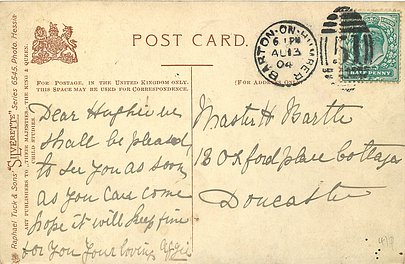 POST CARD.
FOR POSTAGE, IN THE UNITED KINGDOM ONLY,
THIS SPACE MAY BE USED FOR CORRESPONDENCE.
(FOR ADDRESS ONLY
BARTON-ON-HUMBER
6 PM
AU 13
04
HALF PENNY
Raphael Tuck & Sons' "SILVERETTE" Serie 6546. Photo, Hessle
ART PUBLISHERS TO THEIR MAJESTIES THE KING & QUEEN.
CHILD STUDIES.
Dear Hughie we
shall be pleased
to see you as soon
as you can come
hope it will keep fine
for you your loving
Master H Bartle
13 Oxford place Cottages
Doncaster